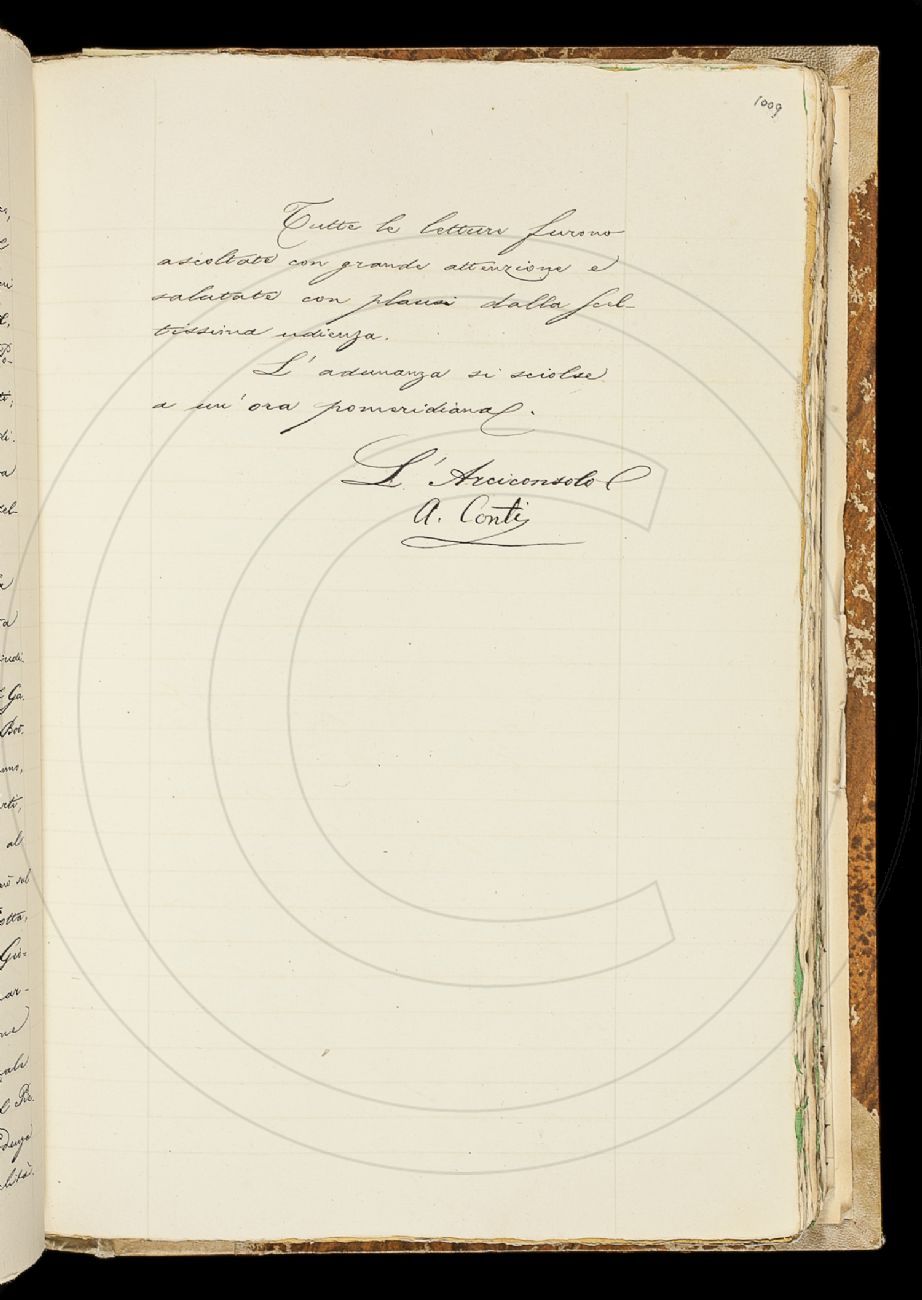 1009
Tutte le letture furono
ascoltate con grande attenzione e
salutate con plausi dalla scel-
tissima udienza.
L'adunanza si sciolse
a un'ora pomeridiana.
L'Arciconsolo
A. Conti